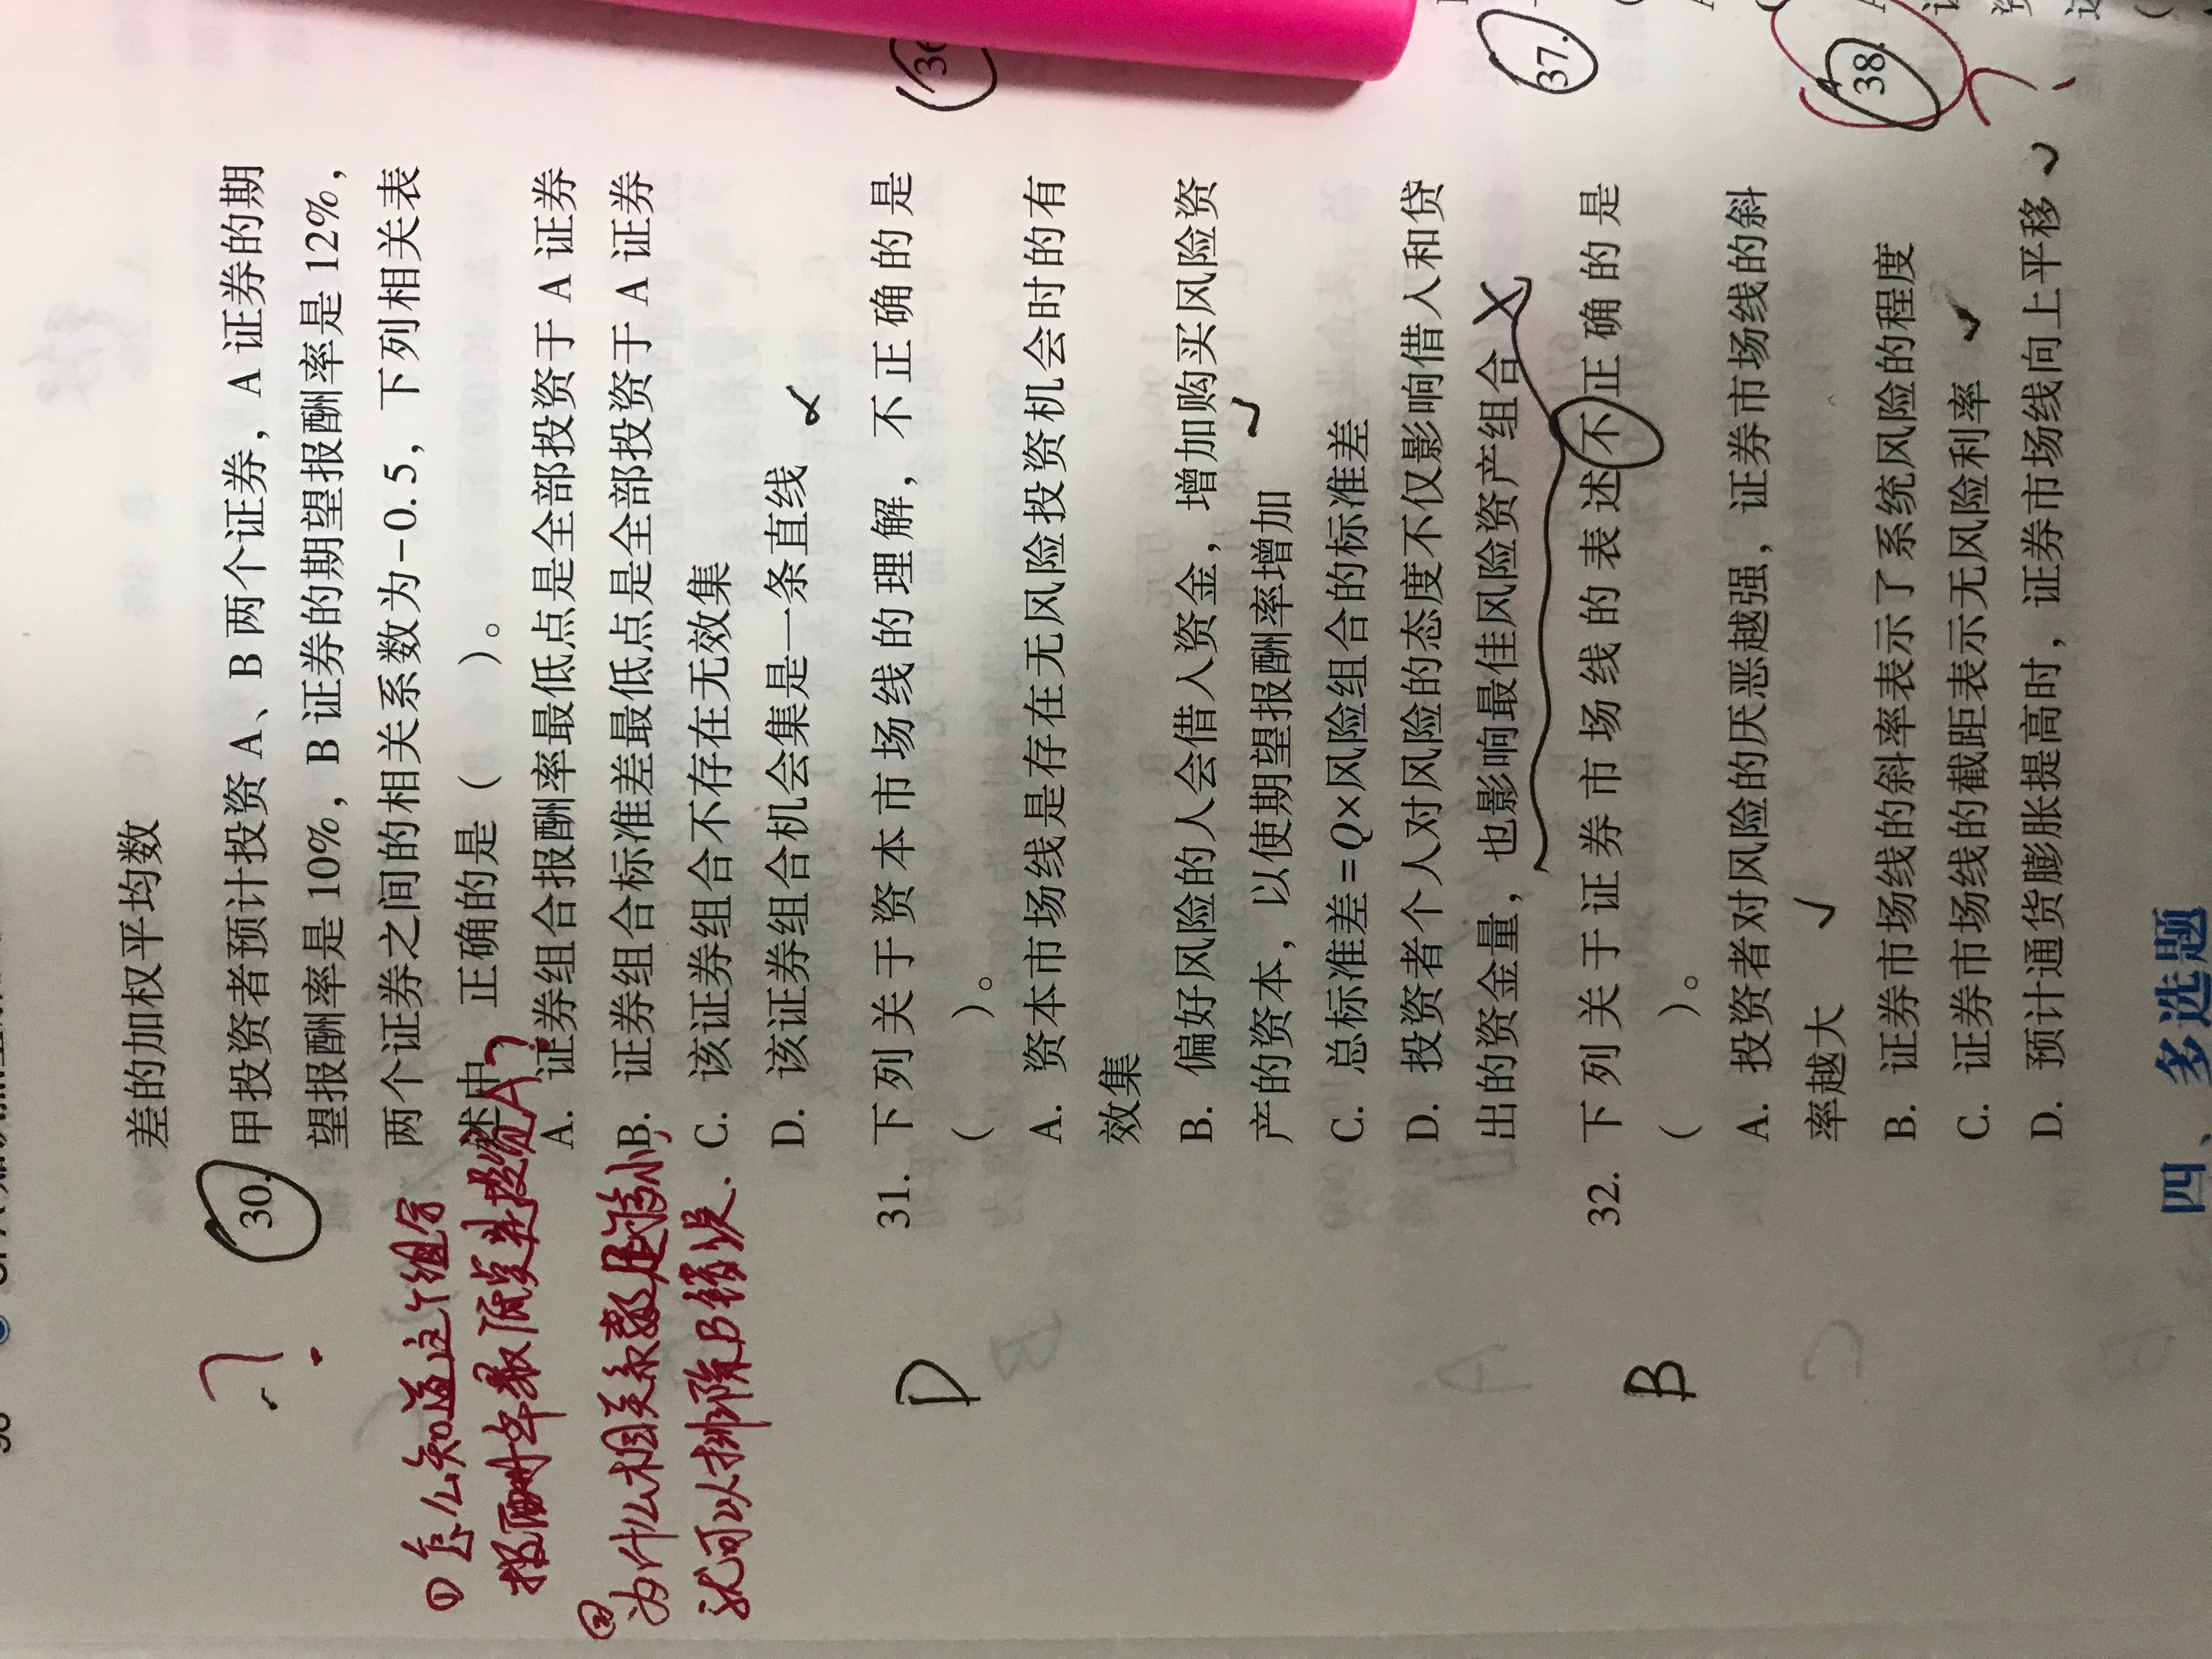 差的加权平均数
30. 甲投资者预计投资 A、B 两个证券，A 证券的期
望报酬率是 10%，B 证券的期望报酬率是 12%，
两个证券之间的相关系数为-0.5，下列相关表
述中，正确的是（ ）。
A. 证券组合报酬率最低点是全部投资于 A 证券
B. 证券组合标准差最低点是全部投资于 A 证券
C. 该证券组合不存在无效集
D. 该证券组合机会集是一条直线
① 怎么知道这个组合
报酬率最低点是投资A?
② 为什么相关系数足够小,
就可以排除B错误.
31. 下列关于资本市场线的理解，不正确的是
（ ）。
A. 资本市场线是存在无风险投资机会时的有
效集
B. 偏好风险的人会借入资金，增加购买风险资
产的资本，以使期望报酬率增加
C. 总标准差=Q×风险组合的标准差
D. 投资者个人对风险的态度不仅影响借入和贷
出的资金量，也影响最佳风险资产组合
D
32. 下列关于证券市场线的表述不正确的是
（ ）。
A. 投资者对风险的厌恶越强，证券市场线的斜
率越大
B. 证券市场线的斜率表示了系统风险的程度
C. 证券市场线的截距表示无风险利率
D. 预计通货膨胀提高时，证券市场线向上平移
B
四、多选题
37.
38.